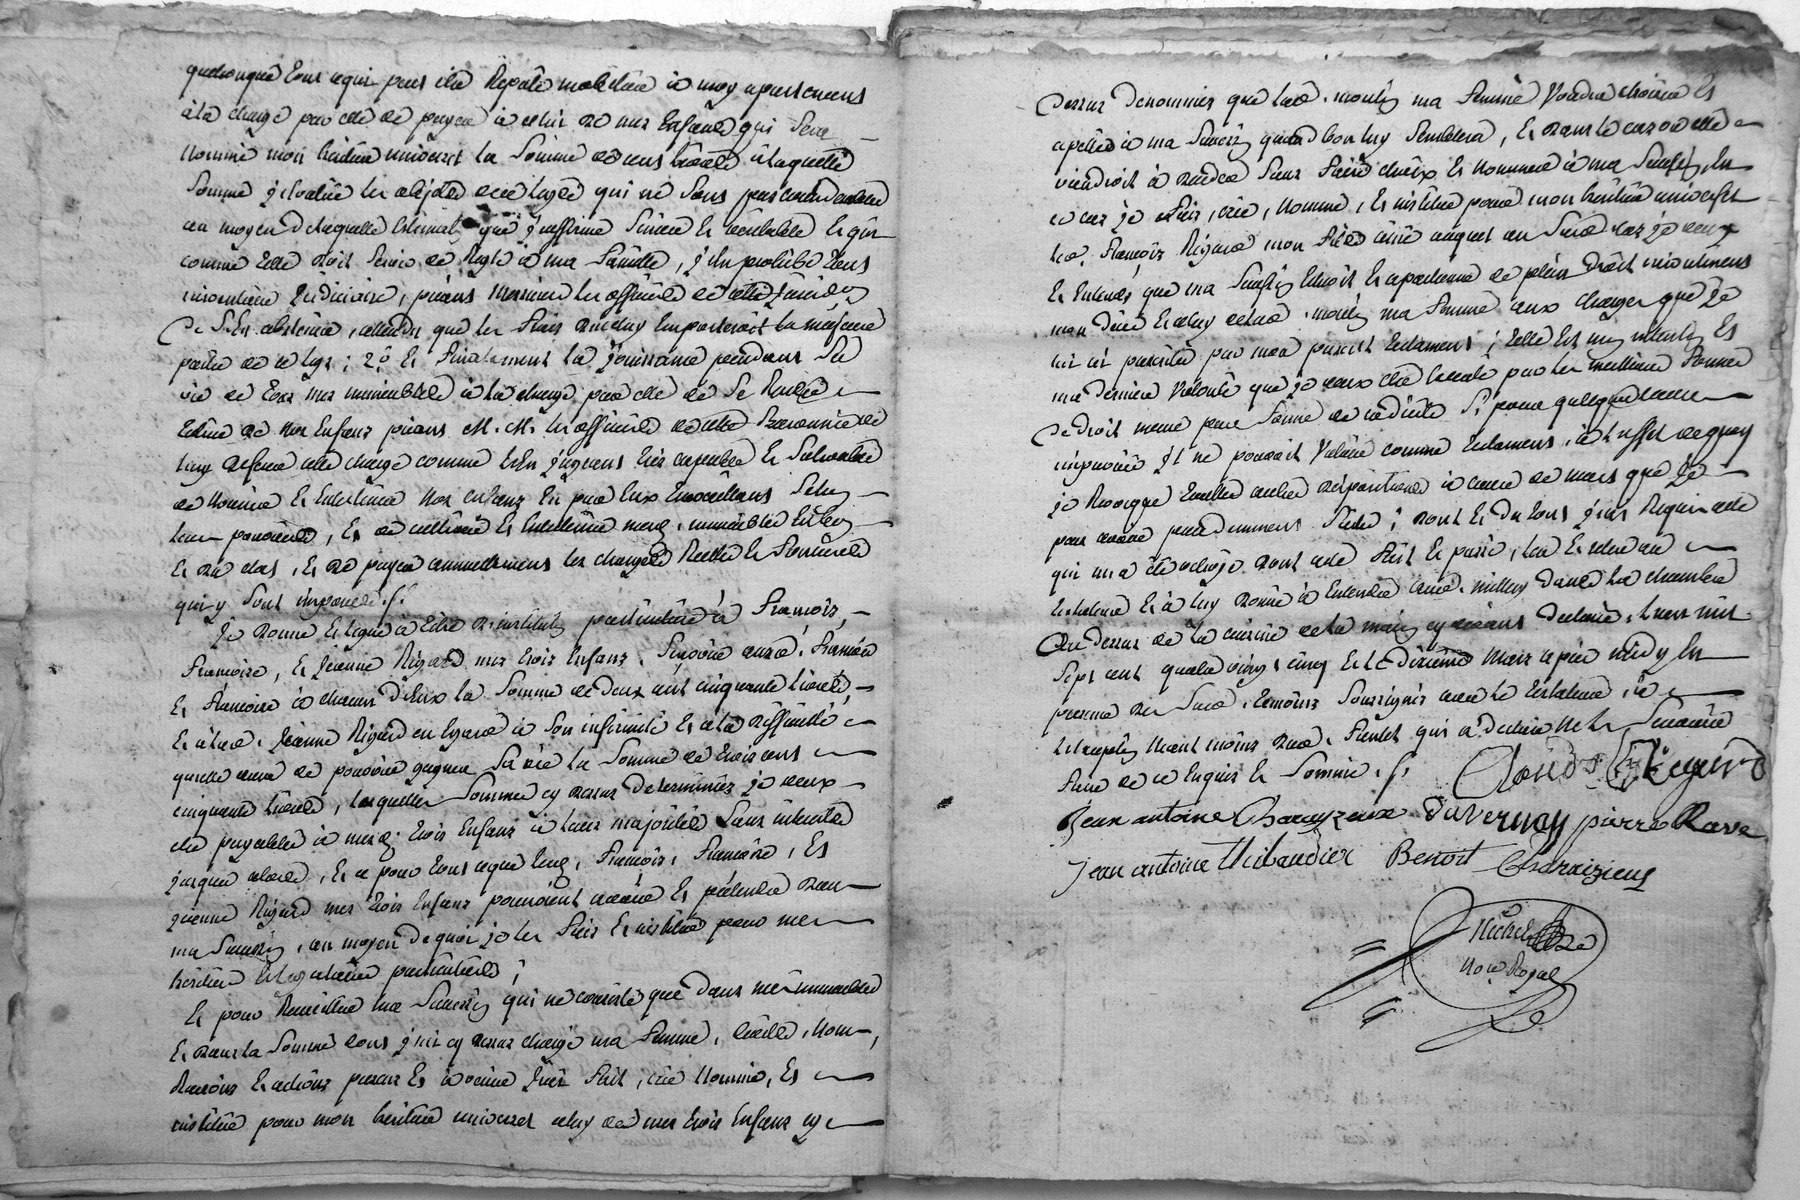 quelconque tout ce qui peut être réputé mobiliaire à moy apartenant
à la charge par elle de payer à celui de mes enfans qui sera
nommé mon héritier universel la somme de cens livres à laquelle
somme j'evalue les objets de ce legs qui ne sont pas
au moyen de laquelle estimation que j'affirme sincere et veritable et qui
comme telle doit servir de regle à ma famille, j'en prohibe tous
inventaire judiciaire, priant messieurs les officiers de cette
de s'en abstenir, attendu que les frais d'iceluy emporteroit la majeure
partie de ce legs ; 2º et finalement la jouissance pendant sa
vie de tous mes immeubles à la charge par elle de se rendre
tutrice de nos enfans priant M. M. les officiers de cette Baronnie de
luy deferer cette charge comme l'en jugeant très capable et
de nourrir et entretenir nos enfans en par eux travaillant selon
leur pouvoir, et de cultiver et entretenir mesd. immeubles
et de payer annuellement les charges réelles et foncières
qui y sont imposées ./.
Je donne et legue à titre d'institution particulière à François,
Françoise, et Jeanne Rigard mes trois enfans, sçavoir auxd. François
et Françoise à chacun d'eux la somme de deux cent cinquante livres,
et à lad. Jeanne Rigard eu égard à son infirmité et à la difficulté
qu'elle aura de pouvoir gagner sa vie la somme de trois cent
cinquante livres, lesquelles sommes cy dessus determinées je veux
être payables à mesd. trois enfans à leur majorité sans interets
jusques alors, et ce pour tout ce que lesd. François, Françoise, et
Jeanne Rigard mes trois enfans pourroient avoir et pretendre dans
ma succession, au moyen de quoi je les fais et institue pour mes
heritiers et legataires particuliers ;
Et pour recueillir ma succession qui ne consiste que dans mes immeubles
et dans la somme dont j'ai cy dessus chargé ma femme, noms,
raisons et actions present et à venir j'ai fait, créé nommé, et
institué pour mon heritier universel celuy de mes trois enfans cy
dessus denommés que lad. moulin ma femme voudra choisir et
apeller à ma succession quand bon luy semblera, et dans le cas où elle
viendroit à deceder sans faire choix et nommer à ma succession, en
ce cas je fais, crée, nomme, et institue pour mon heritier universel
led. François Rigard mon fils ainé auquel au susd. cas je veux
et entends que ma succession echoit et apartienne de plein droit incontinent
mon décès et celuy de lad. moulin ma femme aux charges que je
lui ai prescrites par mon present testament ; telle est mon intention et
ma derniere volonté que je veux être executée par les meilleures formes
de droit meme par forme de codicille si pour quelque cause
imprévue il ne pouvoit valoir comme testament, à l'effet de quoy
je revoque toutes autres dispositions à cause de mort que je
peux avoir precedemment faites ; dont et du tout j'ai requis acte
qui m'a été octroyé dont acte fait et passé, lu et relu au
testateur et à luy donné à entendre aud. dans la chambre
au dessus de la cuisine de la maison cy devant declarée, l'an mil
sept cent quatre vingt cinq et le dixieme mars après midy en
presence des susd. témoins soussignés avec le testateur, à
l'exception neanmoins dud. qui a declaré ne le sçavoir
faire de ce enquis et sommé ./.
Claude Rigard
Jean antoine Charayzieux Duvernay pierre Rave
Jean antoine Thibaudier Benoit Charaizieus
Michel
Nore Royal